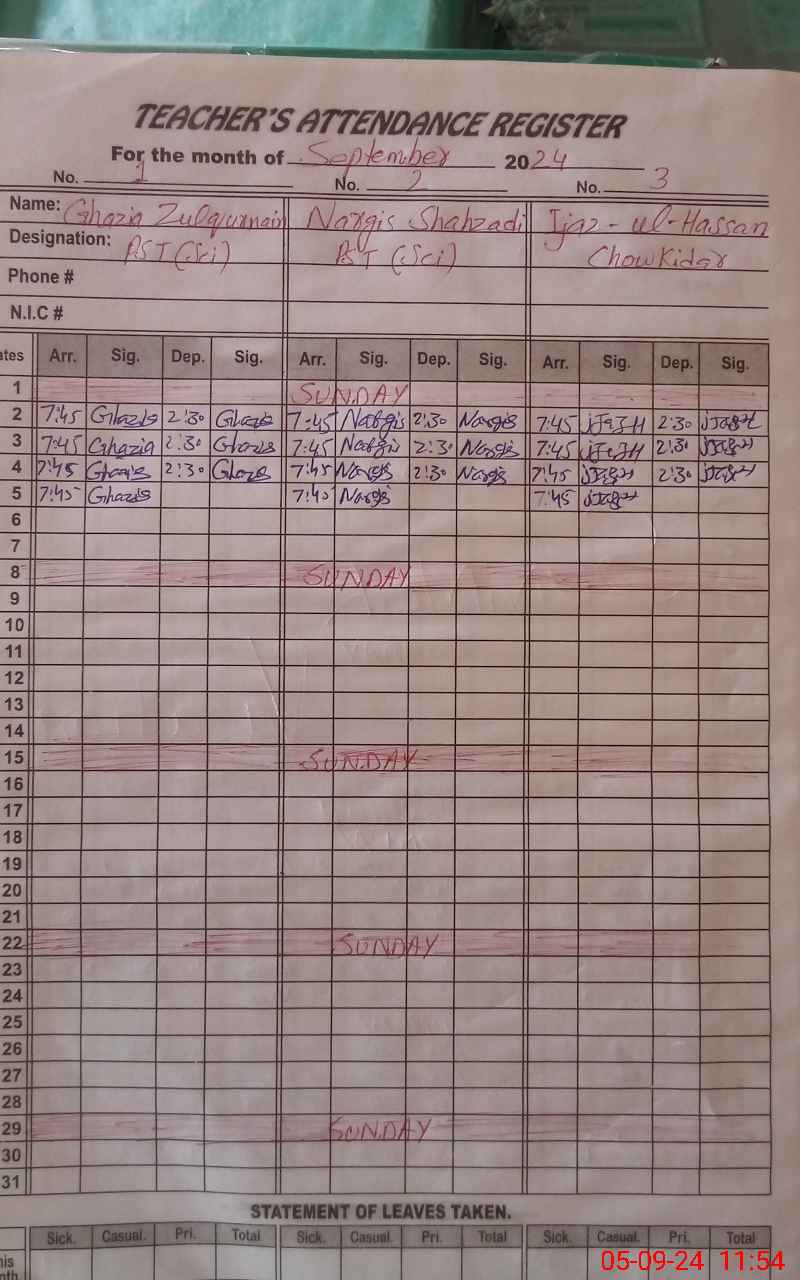 TEACHER'S ATTENDANCE REGISTER
For the month of September 2024
No. 1 No. 2 No. 3
Name: Ghazia Zulqurnain Nargis Shahzadi Ijaz-ul-Hassan
Designation: PST (Sci) PST (Sci) Chowkidar
Phone #
N.I.C #
ates Arr. Sig. Dep. Sig. Arr. Sig. Dep. Sig. Arr. Sig. Dep. Sig.
1 SUNDAY
2 7:45 Ghazia 2:30 Ghazia 7:45 Nargis 2:30 Nargis 7:45 2:30
3 7:45 Ghazia 2:30 Ghazia 7:45 Nargis 2:30 Nargis 7:45 2:30
4 7:45 Ghazia 2:30 Ghazia 7:45 Nargis 2:30 Nargis 7:45 2:30
5 7:45 Ghazia 7:45 Nargis 7:45
6
7
8 SUNDAY
9
10
11
12
13
14
15 SUNDAY
16
17
18
19
20
21
22 SUNDAY
23
24
25
26
27
28
29 SUNDAY
30
31
STATEMENT OF LEAVES TAKEN.
Sick. Casual. Pri. Total Sick. Casual. Pri. Total Sick. Casual. Pri. Total
his
nth
05-09-24 11:54